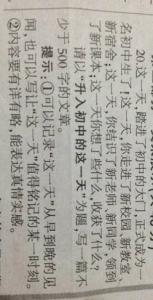 20.这一天,踏进了初中的大门,正式成为一
名初中生了!这一天,你走进了新校园、新教室、
新宿舍;这一天,你结识了新老师、新同学,领到
了新课本;这一天你想了些什么,收获了什么?
请以“升入初中的这一天”为题,写一篇不
少于500字的文章。
提示:①可以记录“这一天”从早到晚的见
闻,也可以写上“这一天”值得铭记的某一时刻。
②内容要有详有略,能表达真情实感。